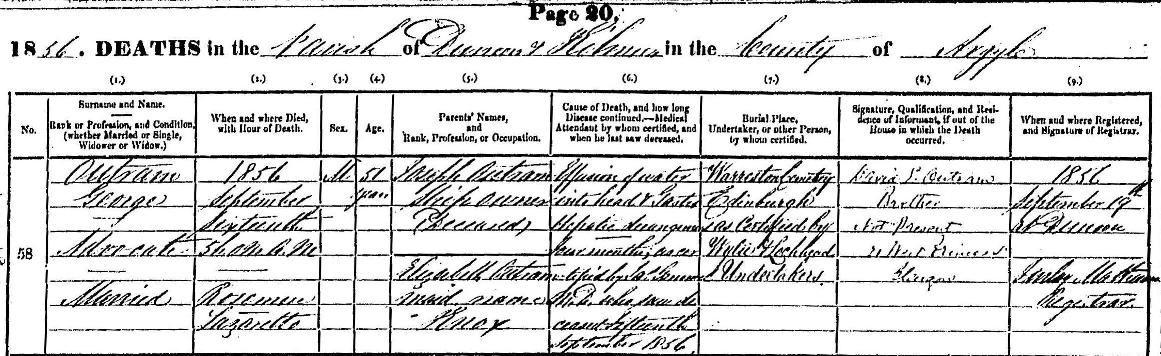 Page 20.
1856. DEATHS in the Parish of Dunoon & Kilmun in the County of Argyle
(1.) (2.) (3.) (4.) (5.) (6.) (7.) (8.) (9.)
No.
Surname and Name.
Rank or Profession, and Condition,
(whether Married or Single,
Widower or Widow.)
When and where Died,
with Hour of Death.
Sex.
Age.
Parents' Names,
and
Rank, Profession, or Occupation.
Cause of Death, and how long
Disease continued.—Medical
Attendant by whom certified, and
when he last saw deceased.
Burial Place,
Undertaker, or other Person,
by whom certified.
Signature, Qualification, and Resi-
dence of Informant, if out of the
House in which the Death
occurred.
When and where Registered,
and Signature of Registrar.
58
Outram
George
Advocate
Married
1856
September
Sixteenth
3h 0m A.M
Rosemun
Lazaretto
M
51
years
Joseph Outram
Ship Owner
(Deceased)
Elizabeth Outram
maid name
Knox
Effusion of water
into head & Gastro
Hepatic derangement
four months, as cer
tified by
M.D. who saw de
ceased Fifteenth
September 1856
Warreston Cemetery
Edinburgh
as Certified by
Wylie & Lochhead
Undertakers
David E. Outram
Brother
Not Present
West Princes
Glasgow
1856
September 19th
at Dunoon
Registrar